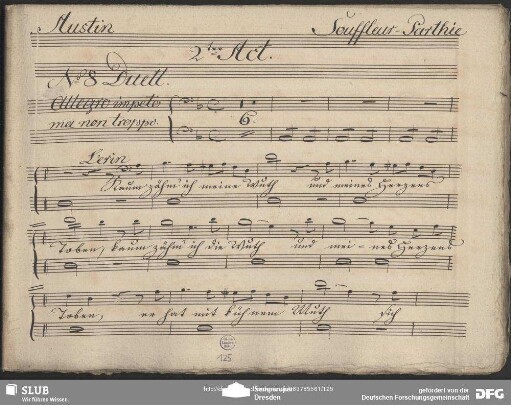 Austin Souffleur-Parthie
2ter Act.
No 8 Duell.
Allegro impeto
ma non troppo.
6
Lerin
Kaum zähm ich meine Wuth und meines Herzens
Toben, kaum zähm ich die Wuth und mei-nes Herzens
Toben, er hat mit kühnem Muth sich
125
SLUB
Wir führen Wissen.
Dresden
gefördert von der
Deutschen Forschungsgemeinschaft
DFG